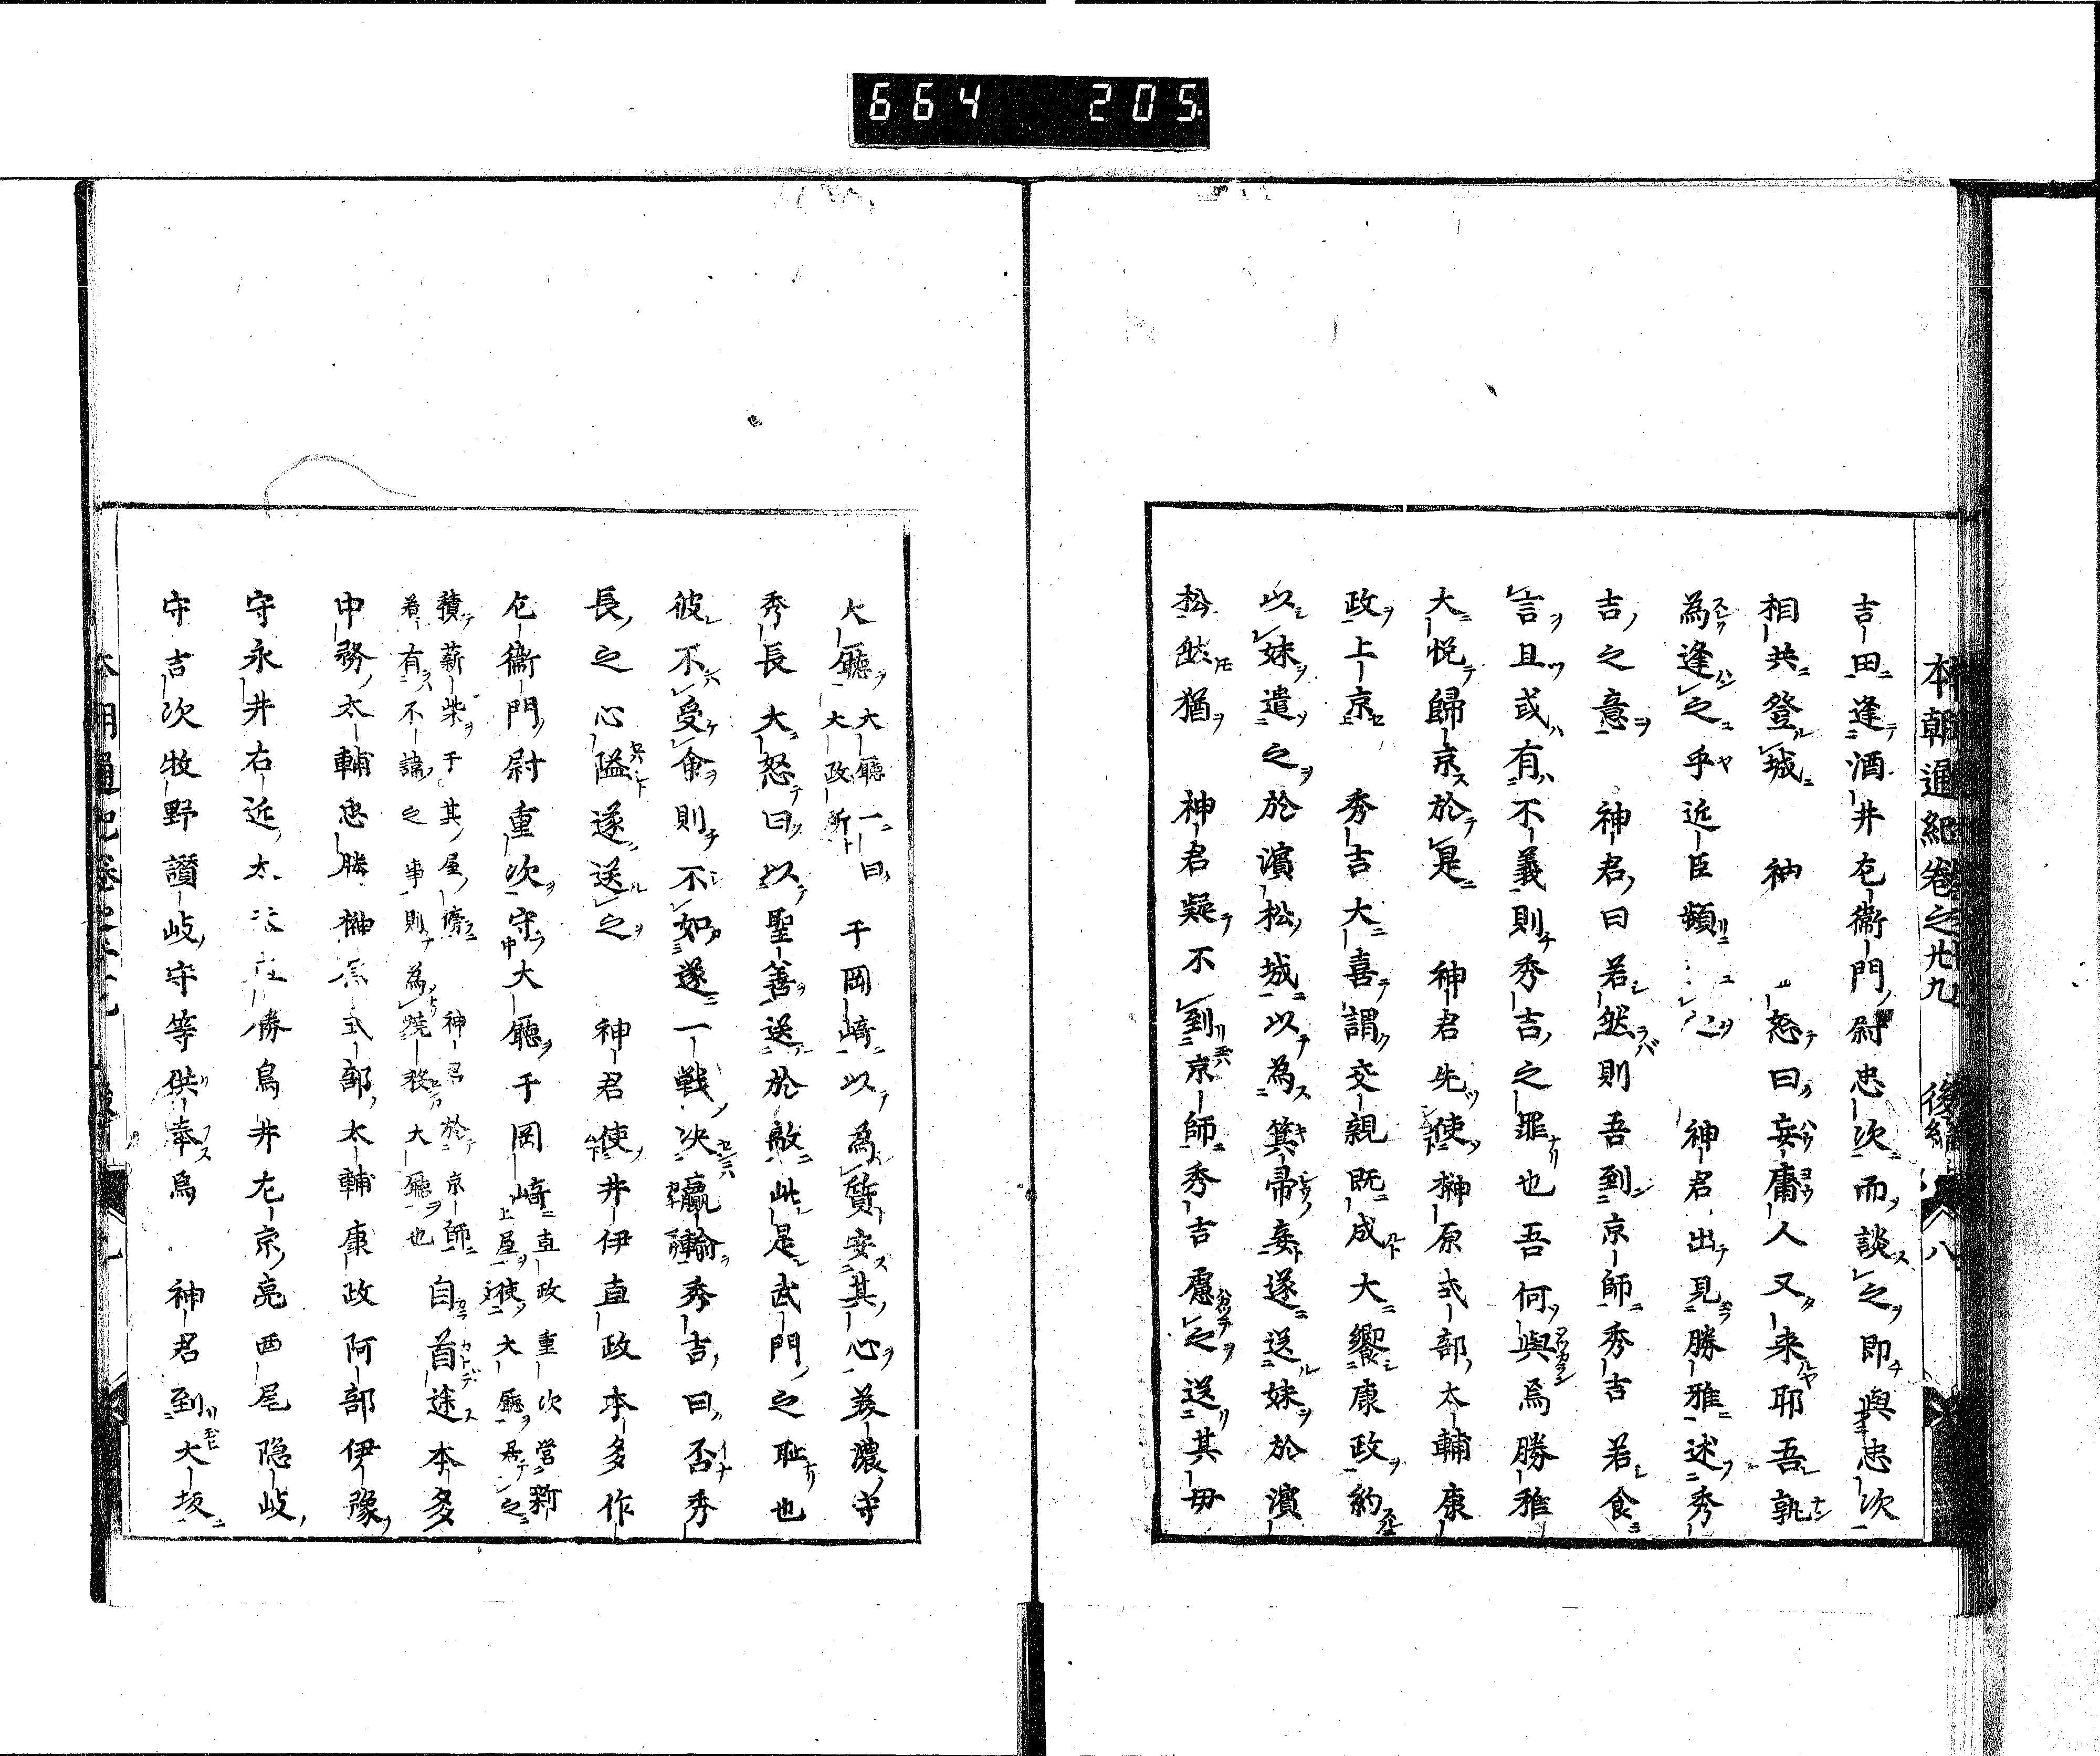 664 205
本朝通紀卷之廿九 後編 八
吉田逢酒井左衞門尉忠次而談之即與忠次
相共登城 神 怒曰妄庸人又来耶吾孰
為逢之乎近臣頻 神君出見勝雅述秀
吉之意 神君曰若然則吾到京師秀吉若食
言且或有不義則秀吉之罪也吾何與焉勝雅
大悦歸京於是 神君先使榊原式部太輔康
政上京 秀吉大喜謂交親既成大饗康政約
以妹遣之於濵松城以為箕帚妾遂送妹於濵
松然猶 神君疑不到京師秀吉慮之送其母
大廳 大廳一曰大政所 于岡﨑以為質安其心美濃守
秀長大怒曰以聖善送於敵此是武門之恥也
彼不受命則不如遂一戦決贏輸秀吉曰否秀
長之心隘遂送之 神君使井伊直政本多作
左衞門尉重次守大廳于岡﨑 直政重次営新屋使大廳居之
積薪柴于其屋傍 神君於京師若有不諱之事則為焼殺大廳也 自首途本多
中務太輔忠勝榊原式部太輔康政阿部伊豫
守永井右近太 勝鳥井左京亮西尾隠岐
守吉次牧野讃岐守等供奉焉 神君到大坂